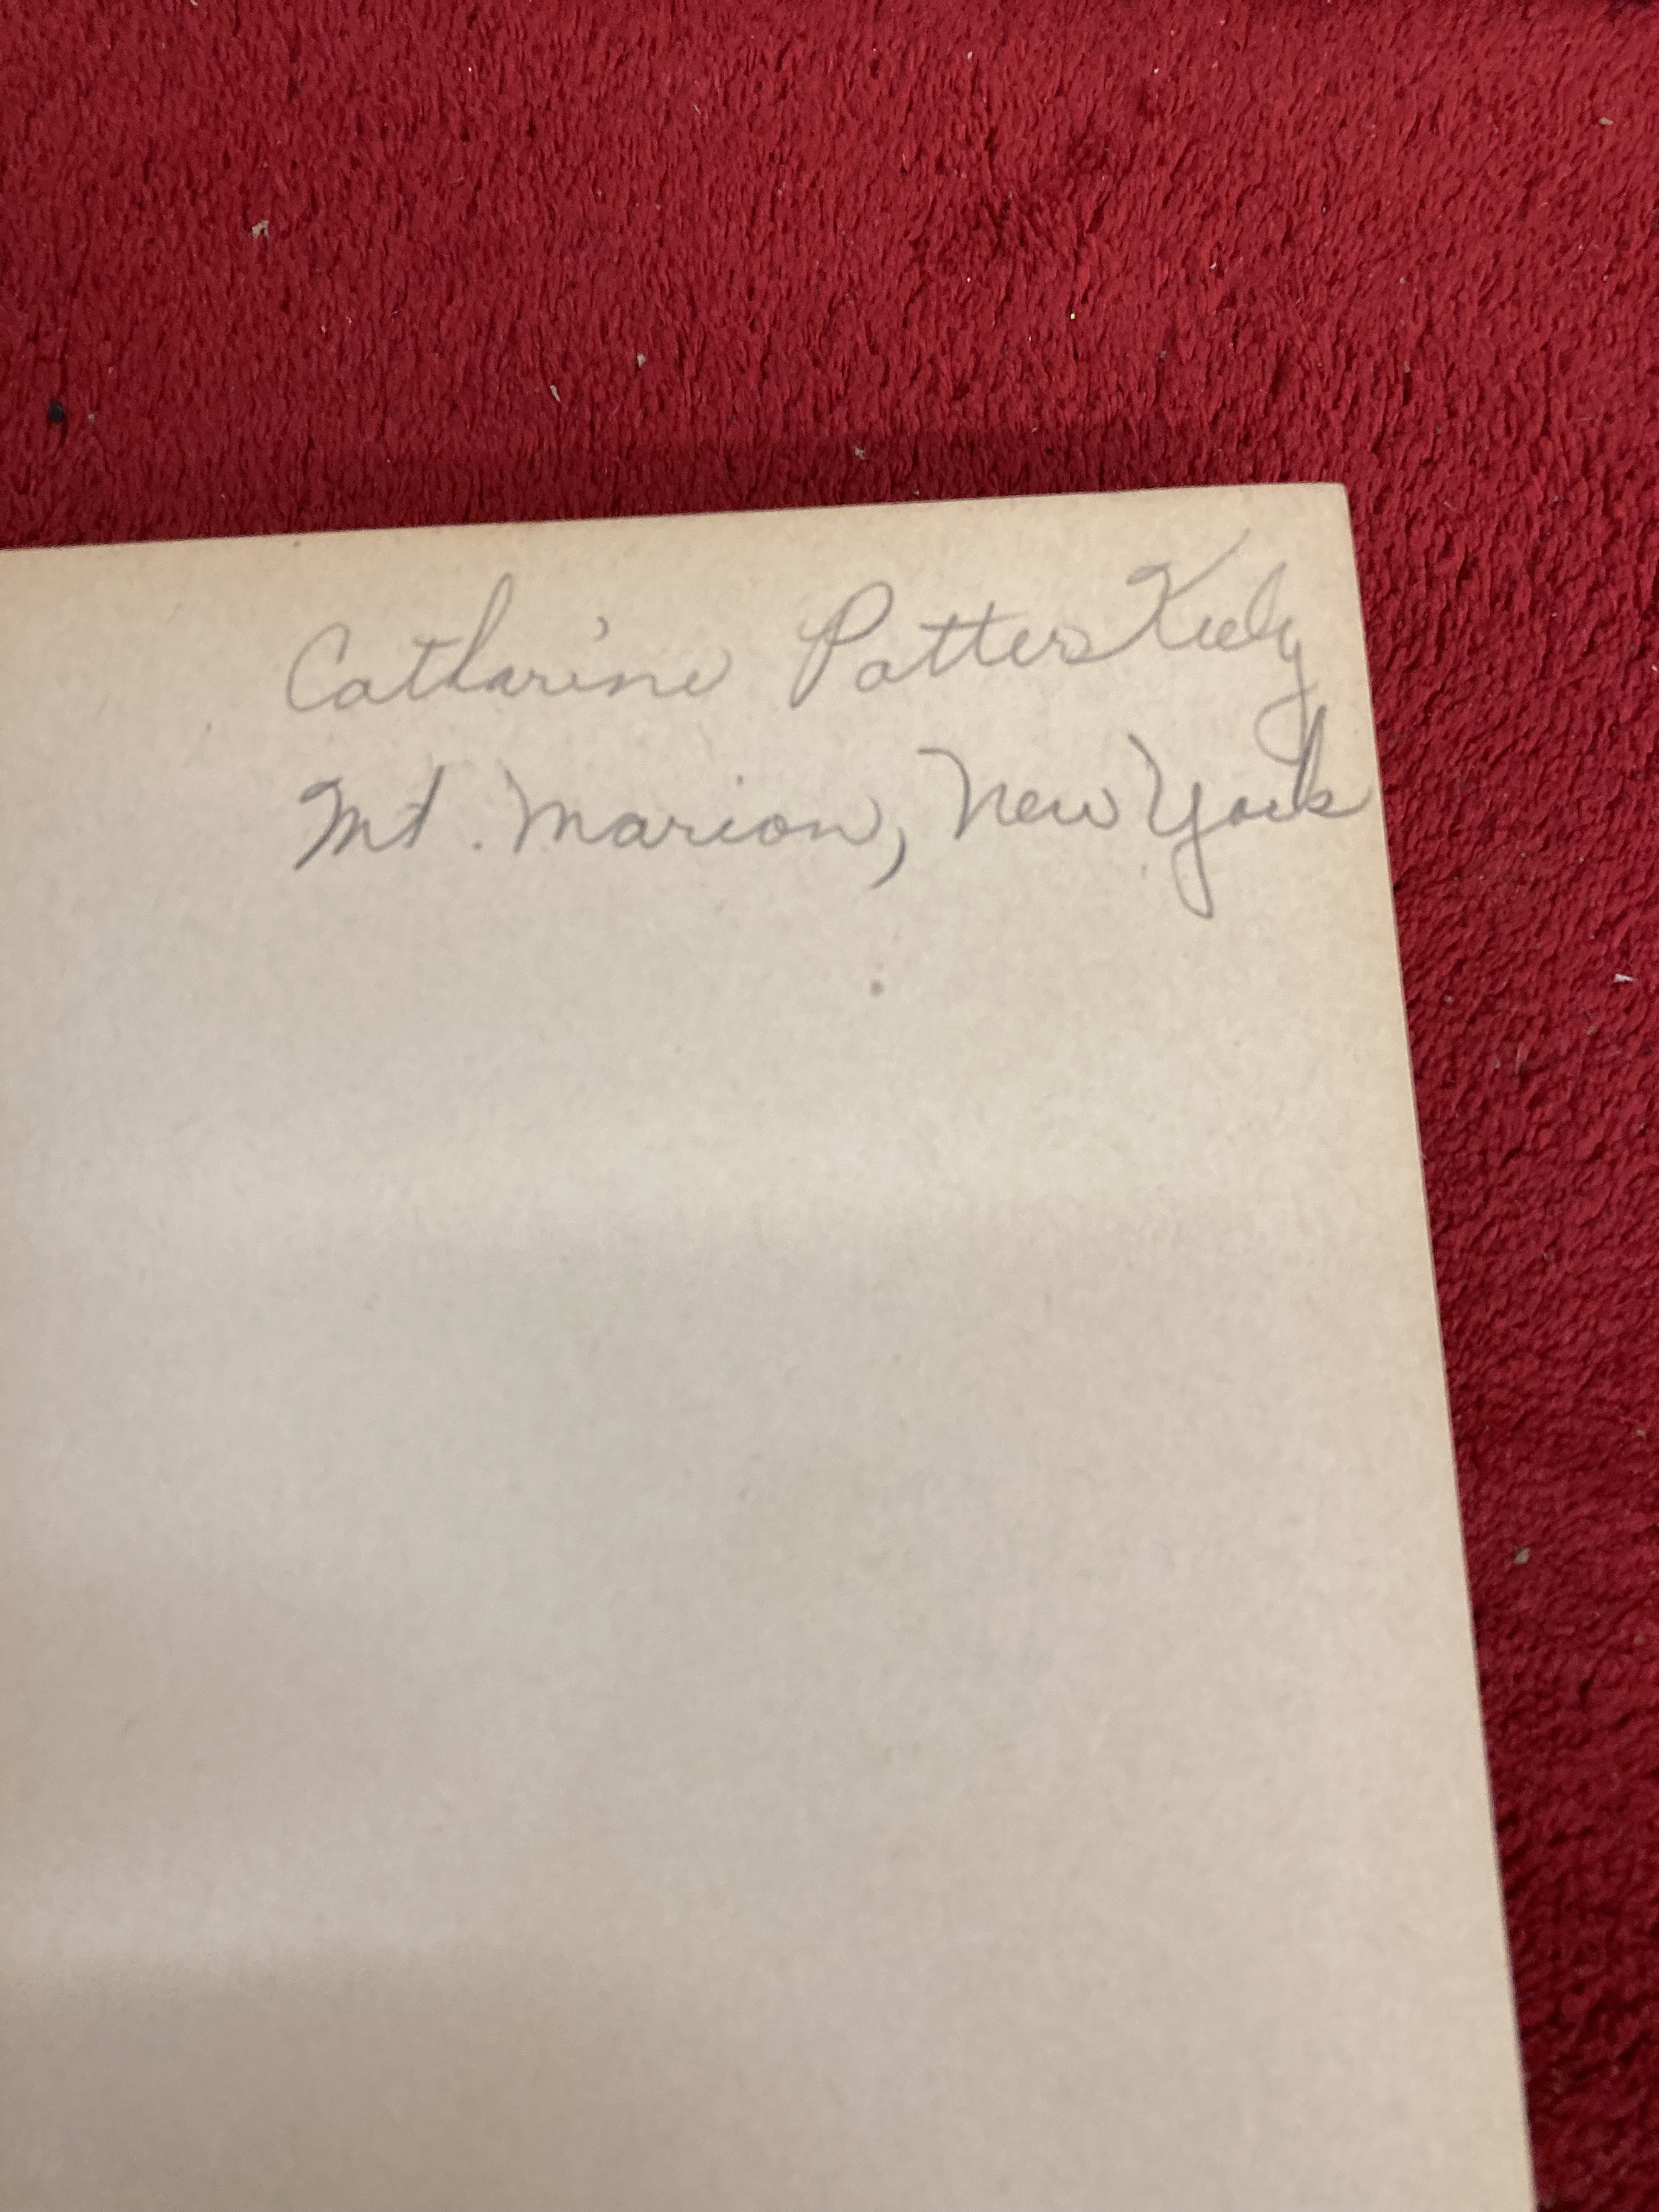 Catharine Patters Keely
Mt. Marion, New York